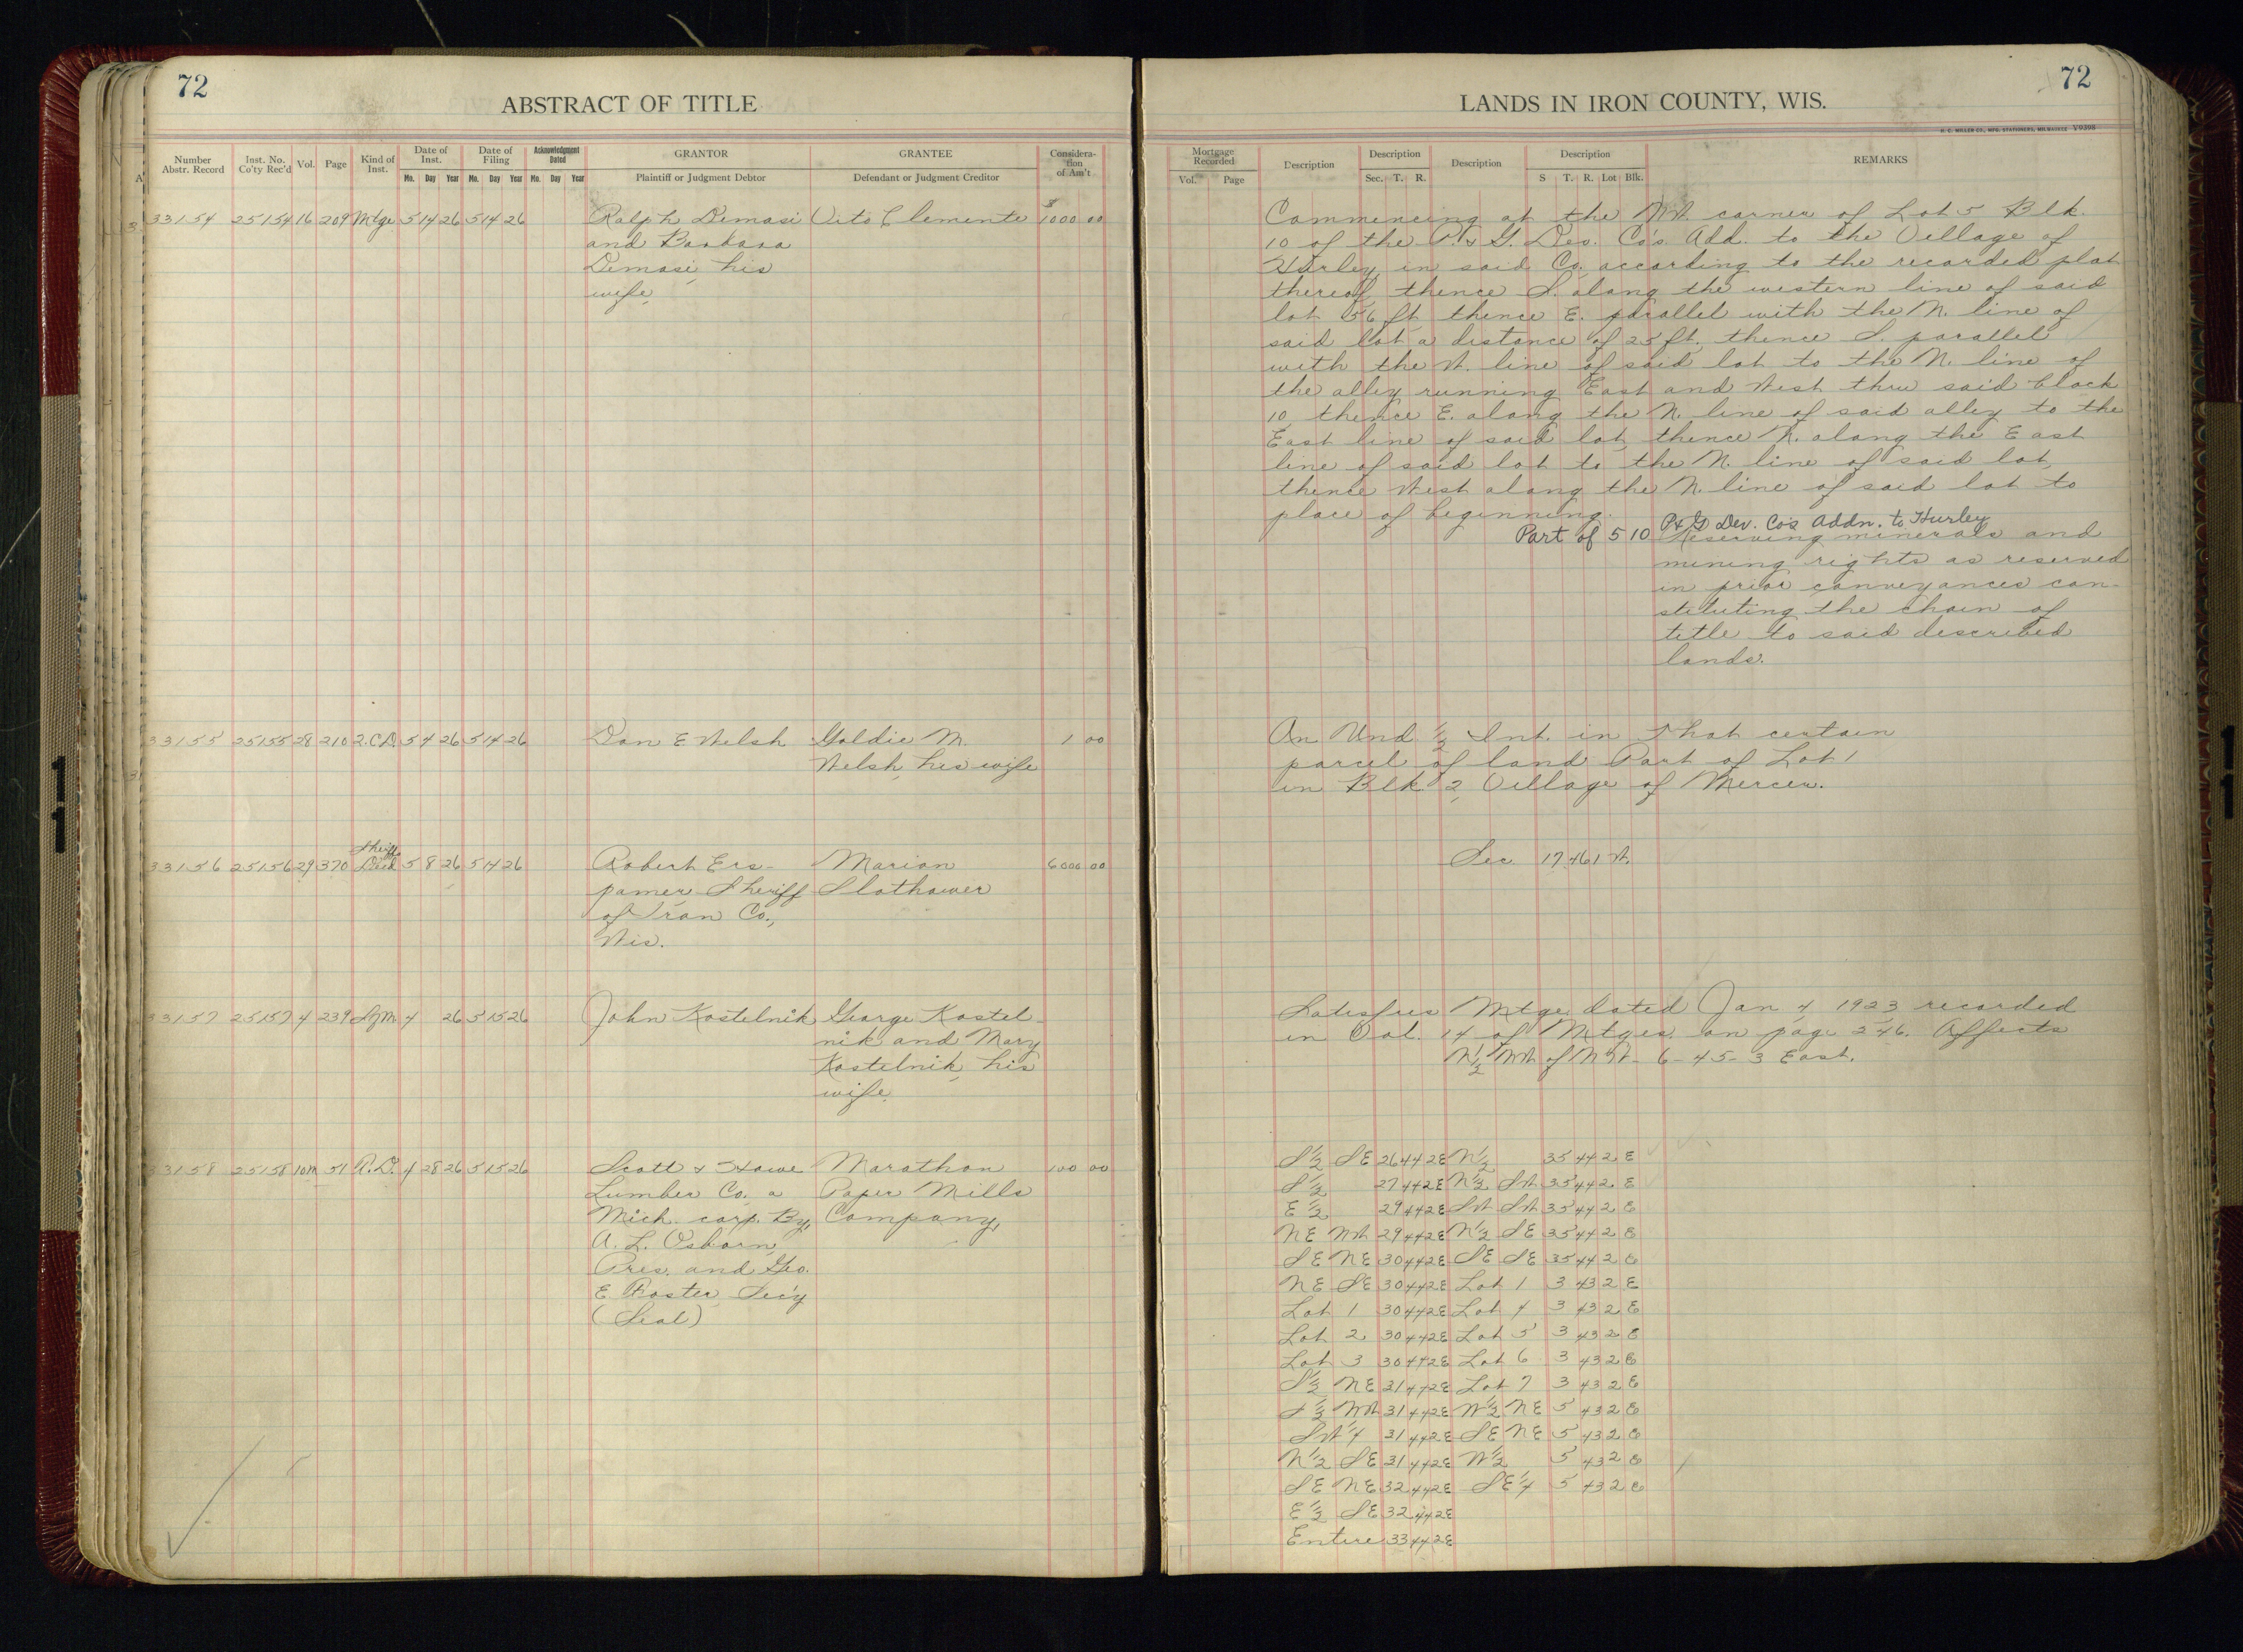 72
ABSTRACT OF TITLE
Number Abstr. Record Inst. No. Co'ty Rec'd Vol. Page Kind of Inst. Date of Inst. Date of Filing Acknowledgment Dated GRANTOR GRANTEE Considera-tion of Am't
Mo. Day Year Mo. Day Year Mo. Day Year Plaintiff or Judgment Debtor Defendant or Judgment Creditor
33154 25154 16 209 Mtge 5 14 26 5 14 26 Ralph Demasi Vito Clemente $1000 00
and Barbara
Demasi, his
wife,
33155 25155 28 210 2.C.D. 5 4 26 5 14 26 Dan E Welsh Goldie M. 1 00
Welsh, his wife
33156 25156 29 370 Sheriff Deed 5 8 26 5 14 26 Robert Ers- Marion 6000 00
pamer Sheriff Slothower
of Iron Co.,
Wis.
33157 25157 4 239 4 26 5 15 26 John Kostelnik George Kostel-
nik and Mary
Kostelnik, his
wife,
33158 25158 10m 51 R.D. 4 28 26 5 15 26 Scott & Howe Marathon 100 00
Lumber Co. a Paper Mills
Mich. corp. By, Company,
A. L. Osborn,
Pres. and Geo.
E Foster Sec'y
(Seal)
72
LANDS IN IRON COUNTY, WIS.
H. C. MILLER CO., MFG. STATIONERS, MILWAUKEE V9398
Mortgage Recorded Description Description Description Description REMARKS
Vol. Page Sec. T. R. S T. R. Lot Blk.
Commencing at the NW corner of Lot 5 Blk.
10 of the P. & G. Dev. Co's. Add. to the Village of
Hurley, in said Co. according to the recorded plat
thereof, thence S. along the western line of said
lot 56 ft. thence E. parallel with the N. line of
said lot a distance of 25 ft. thence S. parallel
with the W. line of said lot to the N. line of
the alley running East and West thru said block
10, thence E. along the N. line of said alley to the
East line of said lot, thence N. along the East
line of said lot to the N. line of said lot,
thence West along the N. line of said lot to
place of beginning.
Part of 5 10 P & G Dev. Co's Addn. to Hurley
Reserving minerals and
mining rights as reserved
in prior conveyances con-
stituting the chain of
title to said described
lands.
An Und. 1/2 Int. in that certain
parcel of land Part of Lot 1
in Blk 2, Village of Mercer.
Sec. 17 46 1 W.
Satisfies Mtge dated Jan 4, 1923 recorded
in Vol. 14 of Mtges. on page 246. Affects
N 1/2 NW of NW - 6 - 45 - 3 East.
S 1/2 SE 26 44 2E N 1/2 35 44 2 E
S 1/2 27 44 2E N 1/2 SW 35 44 2 E
E 1/2 29 44 2E SW SW 35 44 2 E
NE NW 29 44 2E N 1/2 SE 35 44 2 E
SE NE 30 44 2E SE SE 35 44 2 E
NE SE 30 44 2E Lot 1 3 43 2 E
Lot 1 30 44 2E Lot 4 3 43 2 E
Lot 2 30 44 2E Lot 5 3 43 2 E
Lot 3 30 44 2E Lot 6 3 43 2 E
S 1/2 NE 31 44 2E Lot 7 3 43 2 E
1/2 NW 31 44 2E W 1/2 NE 5 43 2 E
SW 1/4 31 44 2E SE NE 5 43 2 E
N 1/2 SE 31 44 2E W 1/2 5 43 2 E
SE NE 32 44 2E SE 1/4 5 43 2 E
E 1/2 SE 32 44 2E
Entire 33 44 2E